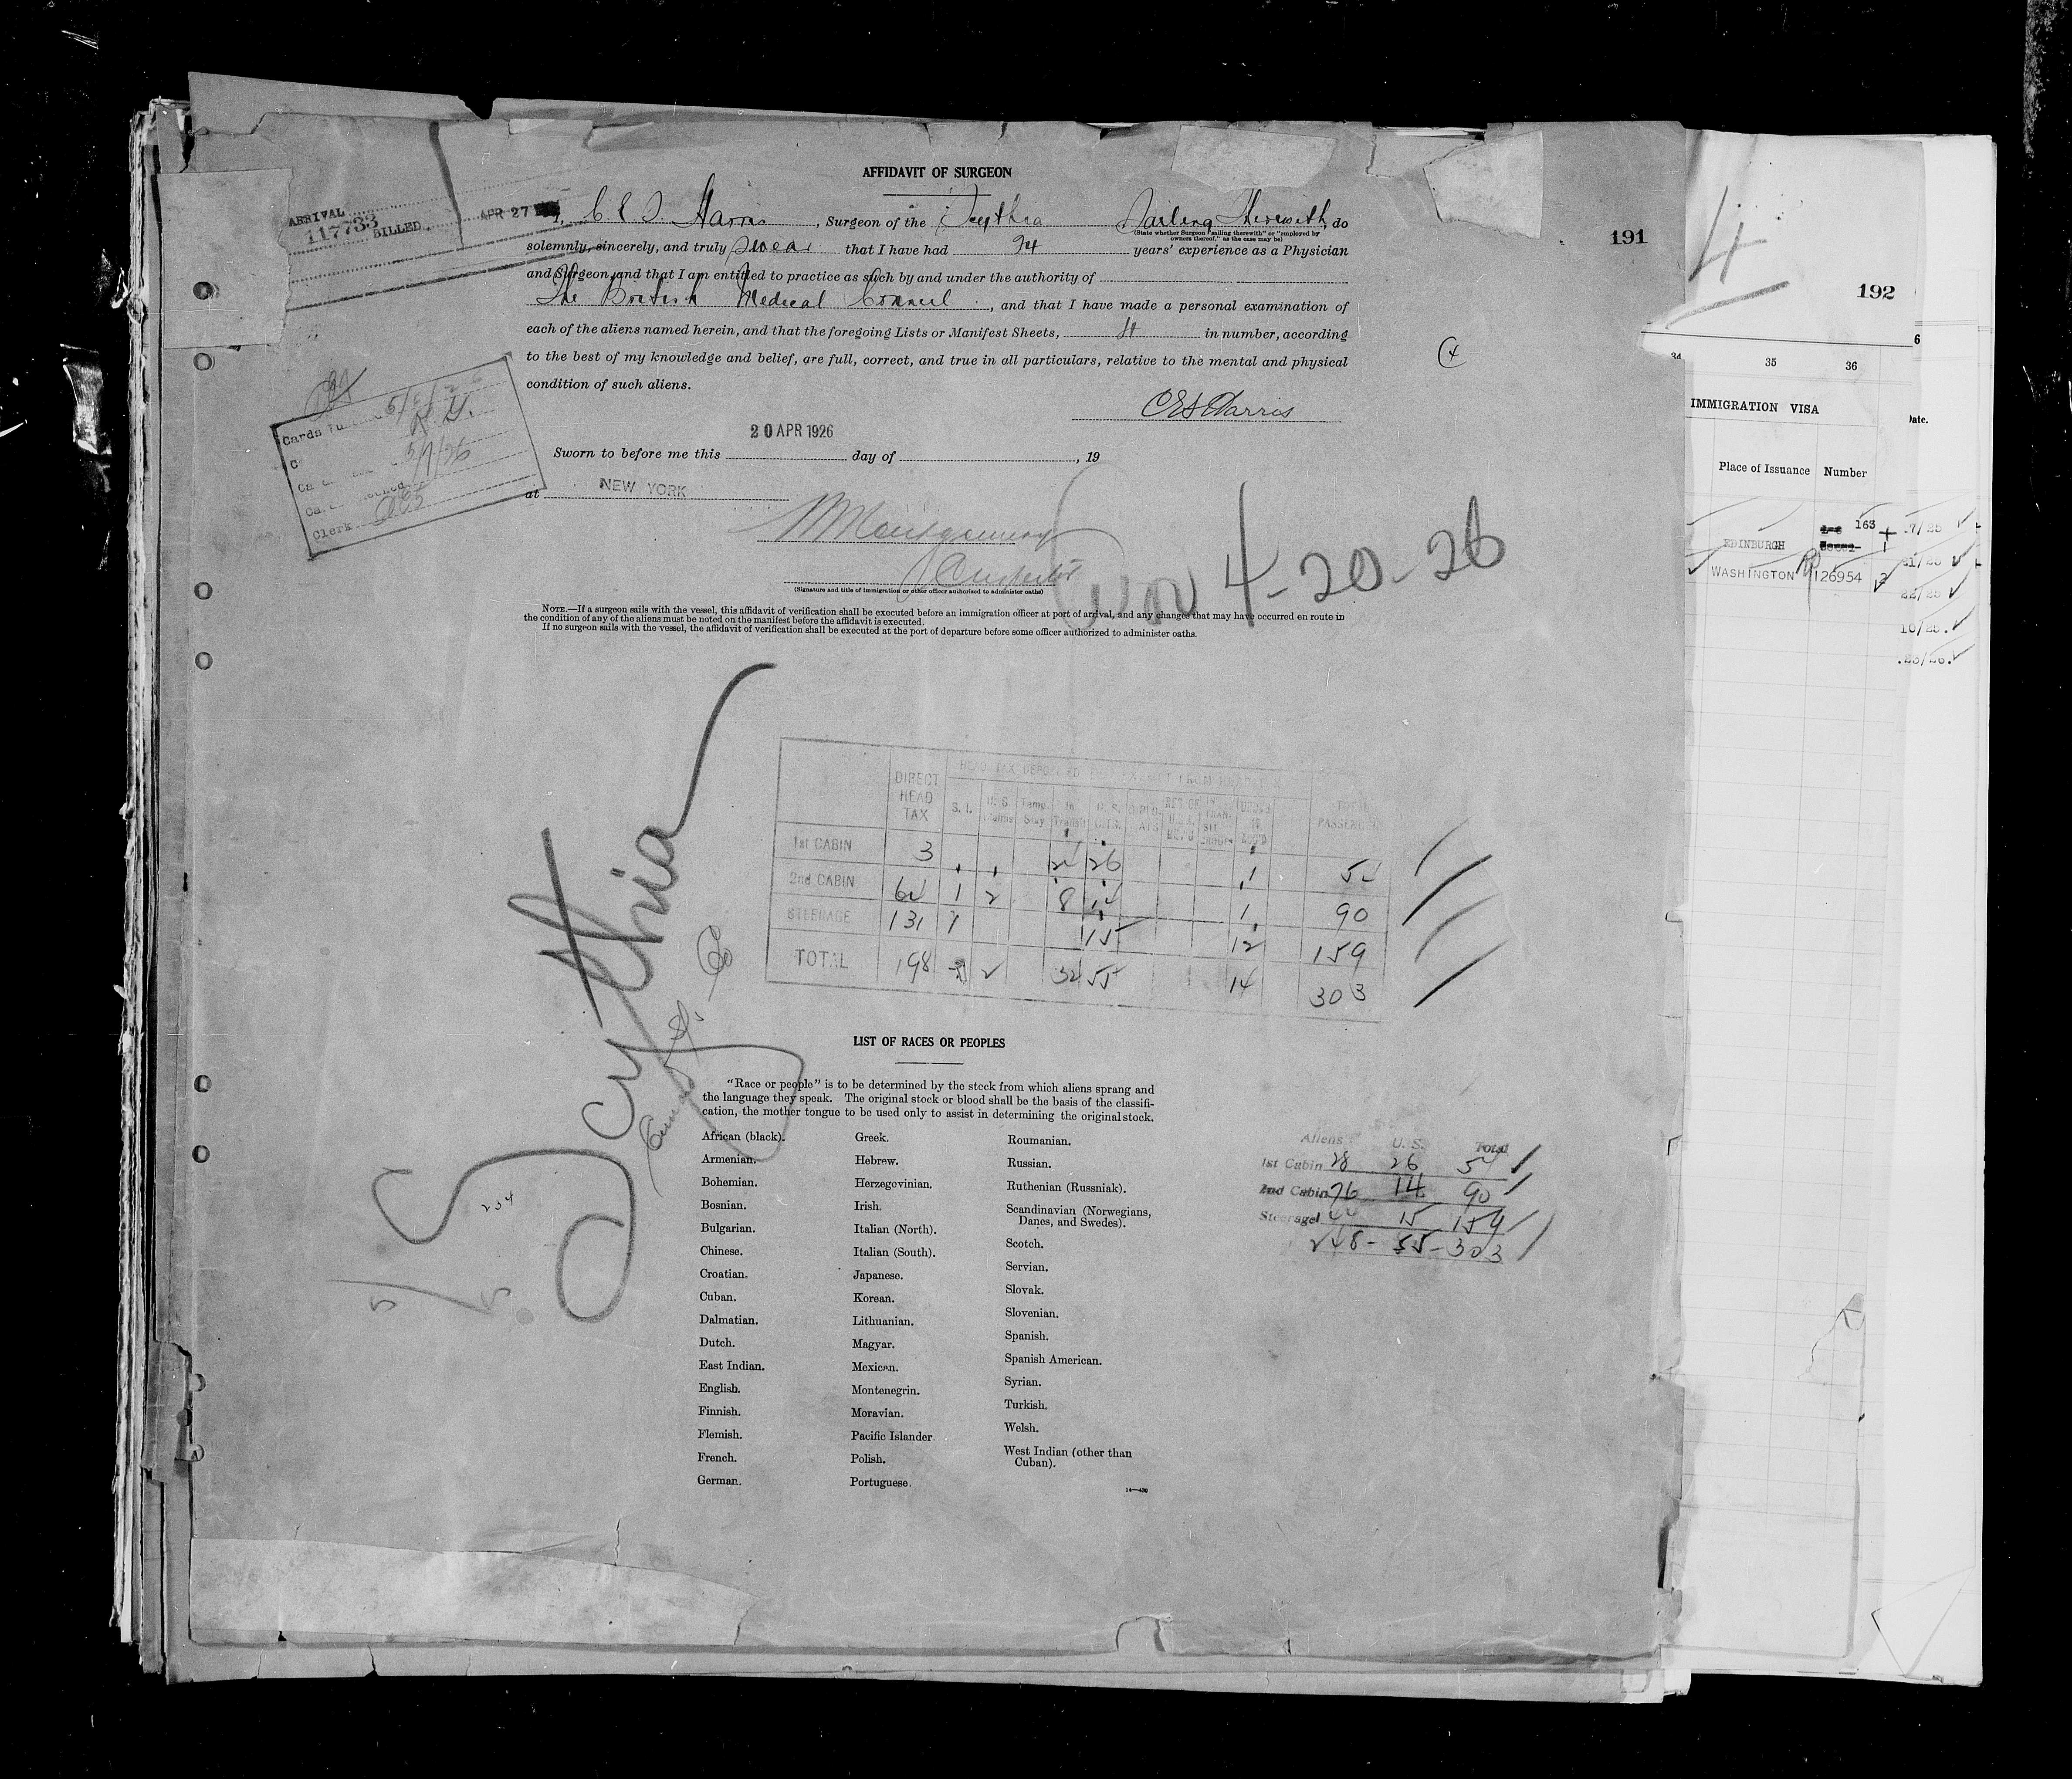 AFFIDAVIT OF SURGEON
ARRIVAL
117733 BILLED
APR 27
191
I, C E S. Harris, Surgeon of the Scythia Sailing Therewith, do
(State whether Surgeon "sailing therewith" or "employed by
owners thereof," as the case may be)
solemnly, sincerely, and truly swear that I have had 34 years' experience as a Physician
and Surgeon and that I am entitled to practice as such by and under the authority of
The British Medical Council, and that I have made a personal examination of
each of the aliens named herein, and that the foregoing Lists or Manifest Sheets, in number, according
to the best of my knowledge and belief, are full, correct, and true in all particulars, relative to the mental and physical
condition of such aliens.
CES Harris
20 APR 1926
Sworn to before me this day of , 19
at NEW YORK
Montgomery
Inspector
(Signature and title of immigration or other officer authorized to administer oaths)
4-20-26
NOTE.—If a surgeon sails with the vessel, this affidavit of verification shall be executed before an immigration officer at port of arrival, and any changes that may have occurred en route in
the condition of any of the aliens must be noted on the manifest before the affidavit is executed.
If no surgeon sails with the vessel, the affidavit of verification shall be executed at the port of departure before some officer authorized to administer oaths.
Cards
5/7/26
Clerk
Scythia
Cunard S. S. Co
234
DIRECT HEAD TAX S. I. U. S. Temp. Stay In Transit U. S. CITS. TOTAL
1st CABIN 3 24 26 1 54
2nd CABIN 64 1 2 8 14 1 90
STEERAGE 131 1 15 12 159
TOTAL 198 2 2 32 55 14 303
LIST OF RACES OR PEOPLES
"Race or people" is to be determined by the stock from which aliens sprang and
the language they speak. The original stock or blood shall be the basis of the classifi-
cation, the mother tongue to be used only to assist in determining the original stock.
African (black).
Armenian.
Bohemian.
Bosnian.
Bulgarian.
Chinese.
Croatian.
Cuban.
Dalmatian.
Dutch.
East Indian.
English.
Finnish.
Flemish.
French.
German.
Greek.
Hebrew.
Herzegovinian.
Irish.
Italian (North).
Italian (South).
Japanese.
Korean.
Lithuanian.
Magyar.
Mexican.
Montenegrin.
Moravian.
Pacific Islander.
Polish.
Portuguese.
Roumanian.
Russian.
Ruthenian (Russniak).
Scandinavian (Norwegians,
Danes, and Swedes).
Scotch.
Servian.
Slovak.
Slovenian.
Spanish.
Spanish American.
Syrian.
Turkish.
Welsh.
West Indian (other than
Cuban).
14—430
Aliens U. S. Total
1st Cabin 28 26 54
2nd Cabin 76 14 90
Steerage 144 15 159
248 - 55 - 303
4
192
34 35 36
IMMIGRATION VISA
Place of Issuance Number
163
EDINBURGH
WASHINGTON 126954
6
Date.
7/25
21/25
22/25
10/25.
.23/26.